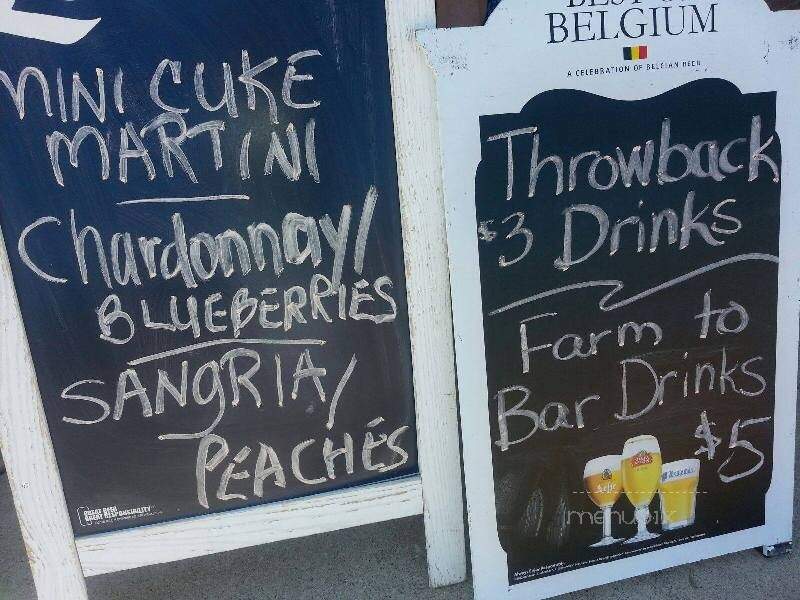 MINI CUKE
MARTINI
Chardonnay/
BLUEBERRIES
SANGRIA/
PEACHES
GREAT BEER
GREAT RESPONSIBILITY
BELGIUM
A CELEBRATION OF BELGIAN BEER
Throwback
$3 Drinks
Farm to
Bar Drinks
$5
Leffe
menupix